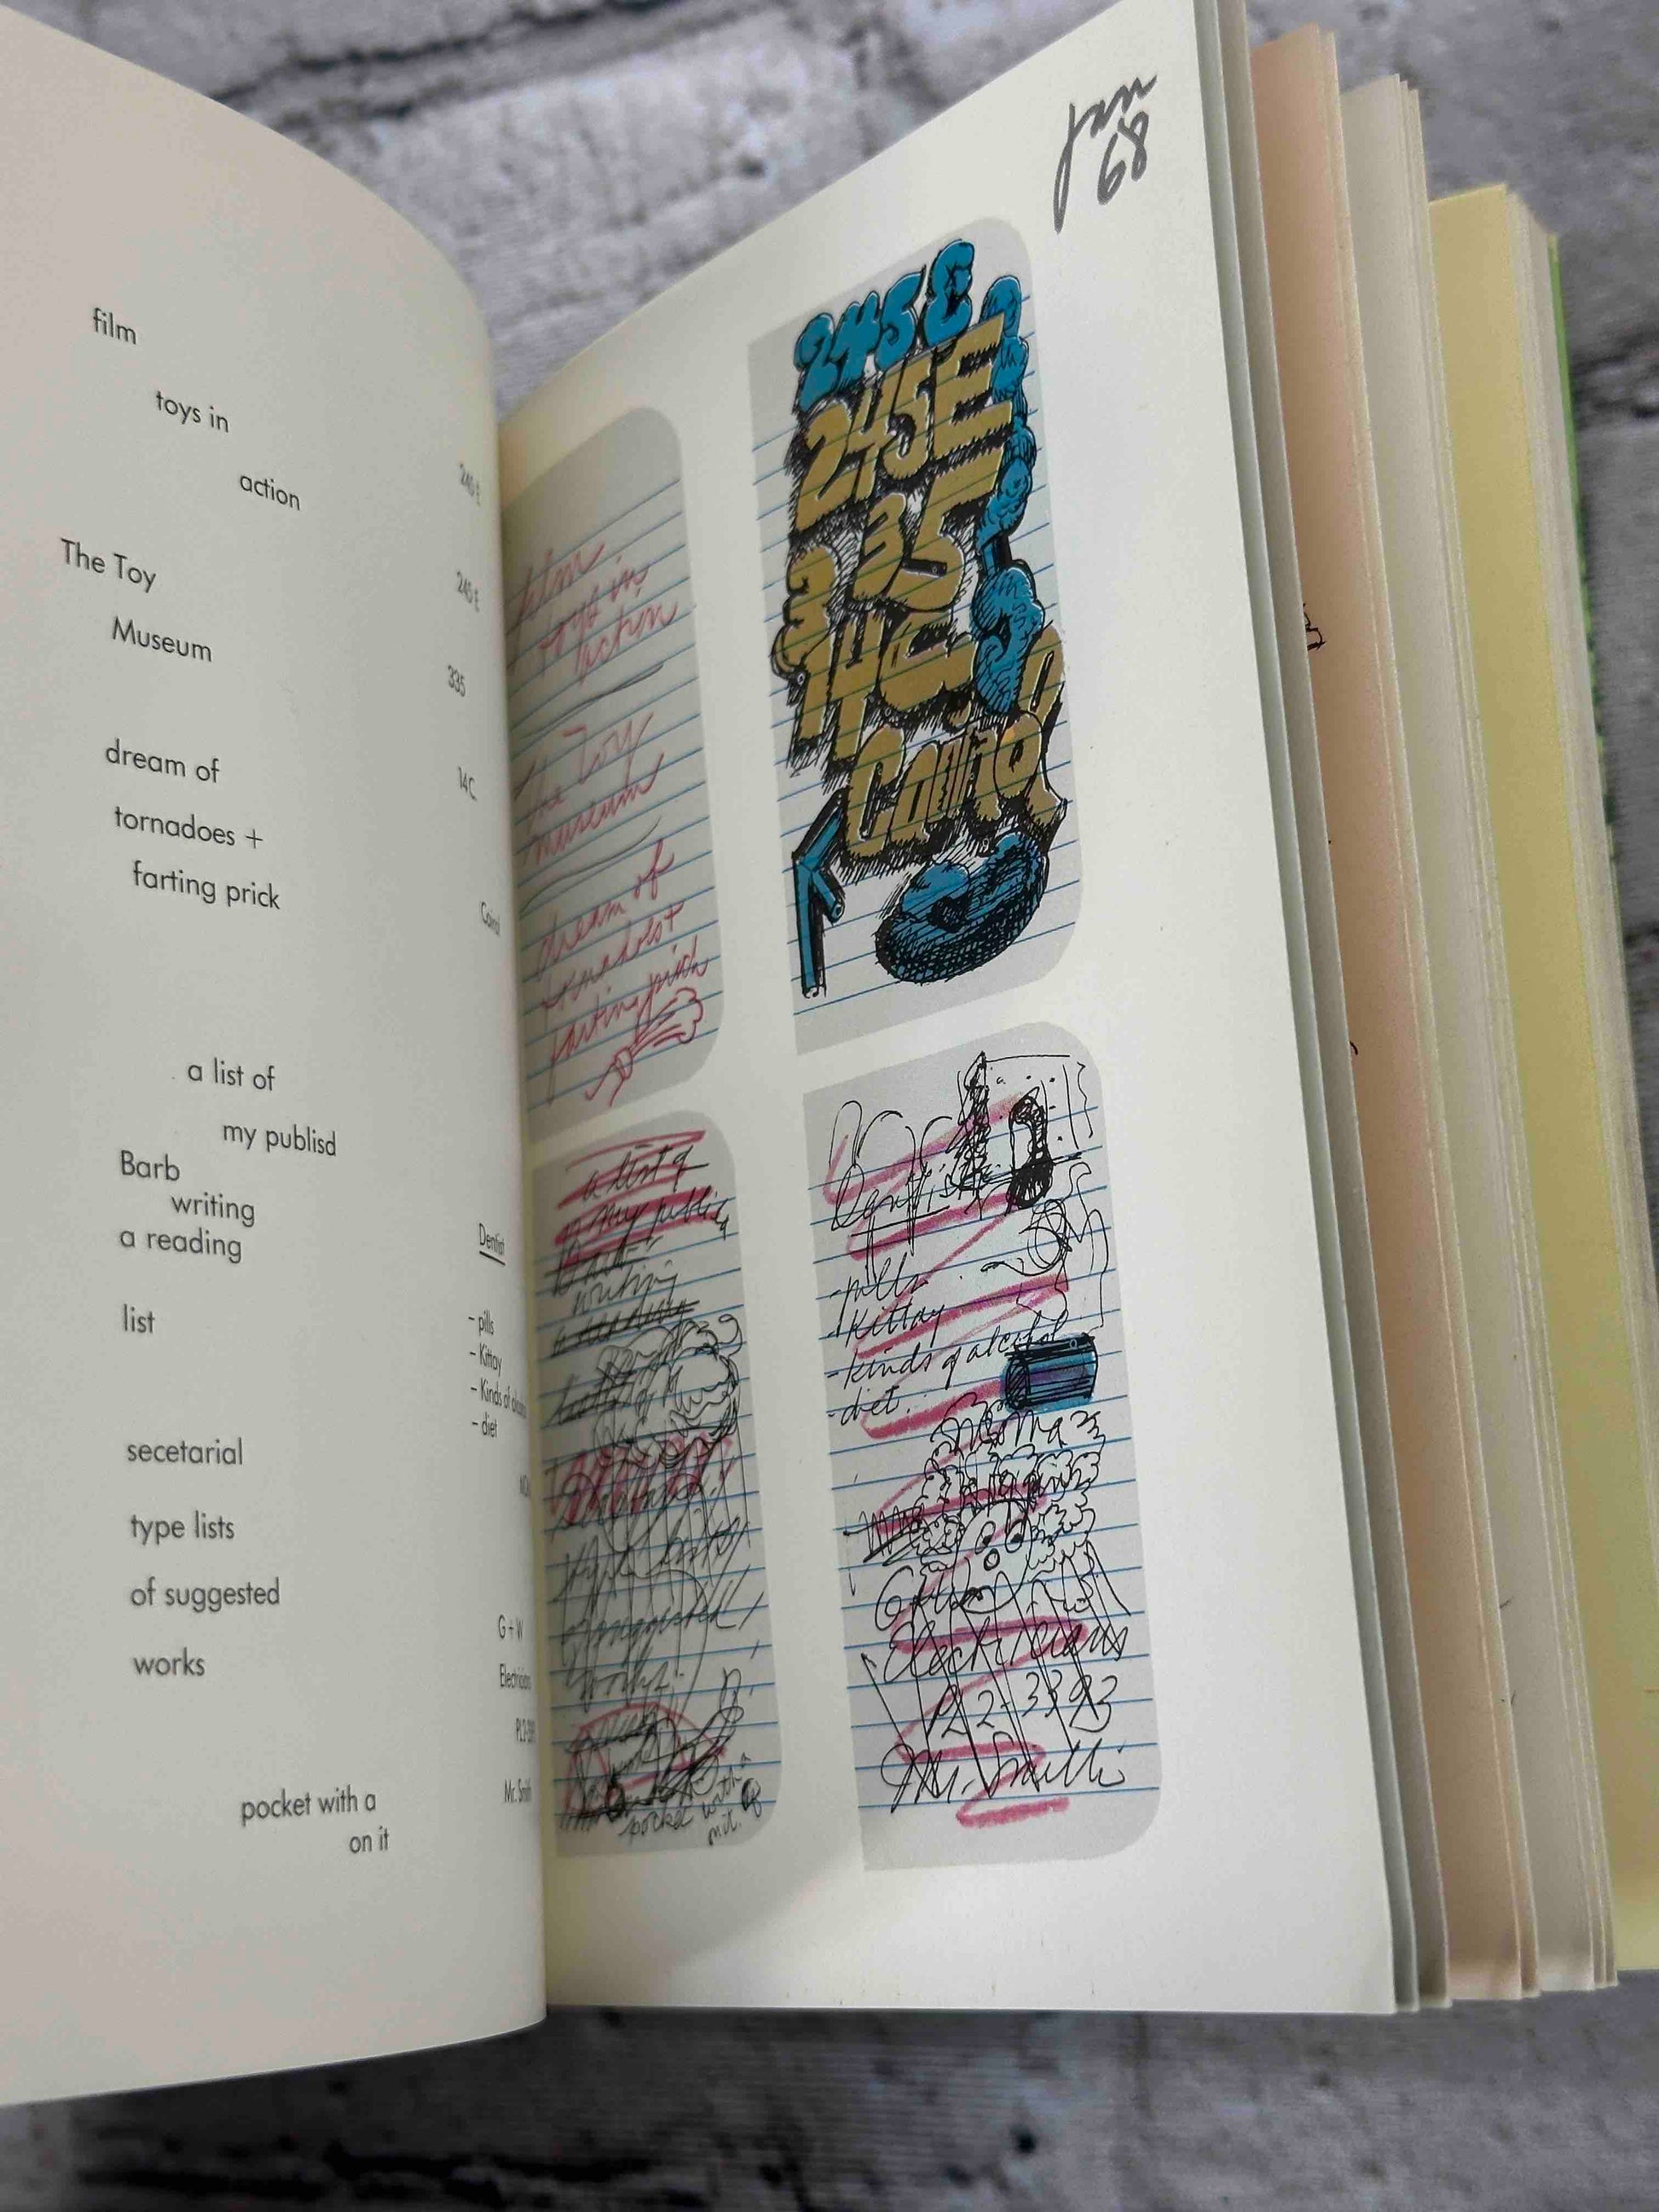 film
toys in
action
The Toy
Museum
dream of
tornadoes +
farting prick
a list of
my publisd
Barb
writing
a reading
list
secetarial
type lists
of suggested
works
pocket with a
on it
240 E
245 E
335
14C
Dentist
- pills
- Kittay
- Kinds of
- diet
G + W
Electricians
Mr. Smith
Jan
68
film
toys in
action
the Toy
museum
dream of
tornadoes +
farting prick
a list of
my publisd
Barb
writing
type lists
of suggested
works
pocket with a
on it
245 E
245E
335
14C
Dentist
- pills
- Kittay
- kinds of alcohol
- diet
G + W
Electricians
PL2-3393
Mr. Smith